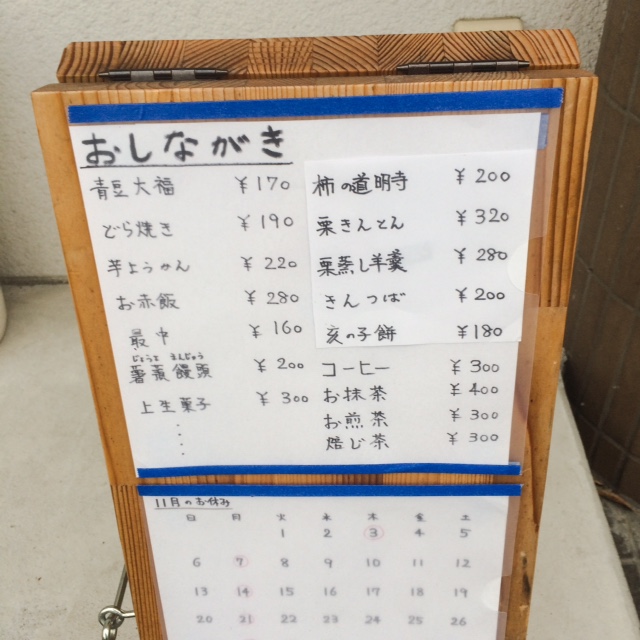 おしながき
青豆大福 ¥170
どら焼き ¥190
芋ようかん ¥220
お赤飯 ¥280
最中 ¥160
じょうよ まんじゅう
薯蕷饅頭 ¥200
上生菓子 ¥300
柿の道明寺 ¥200
栗きんとん ¥320
栗蒸し羊羹 ¥280
きんつば ¥200
亥の子餅 ¥180
コーヒー ¥300
お抹茶 ¥400
お煎茶 ¥300
焙じ茶 ¥300
11月のお休み
日 月 火 水 木 金 土
1 2 3 4 5
6 7 8 9 10 11 12
13 14 15 16 17 18 19
20 21 22 23 24 25 26